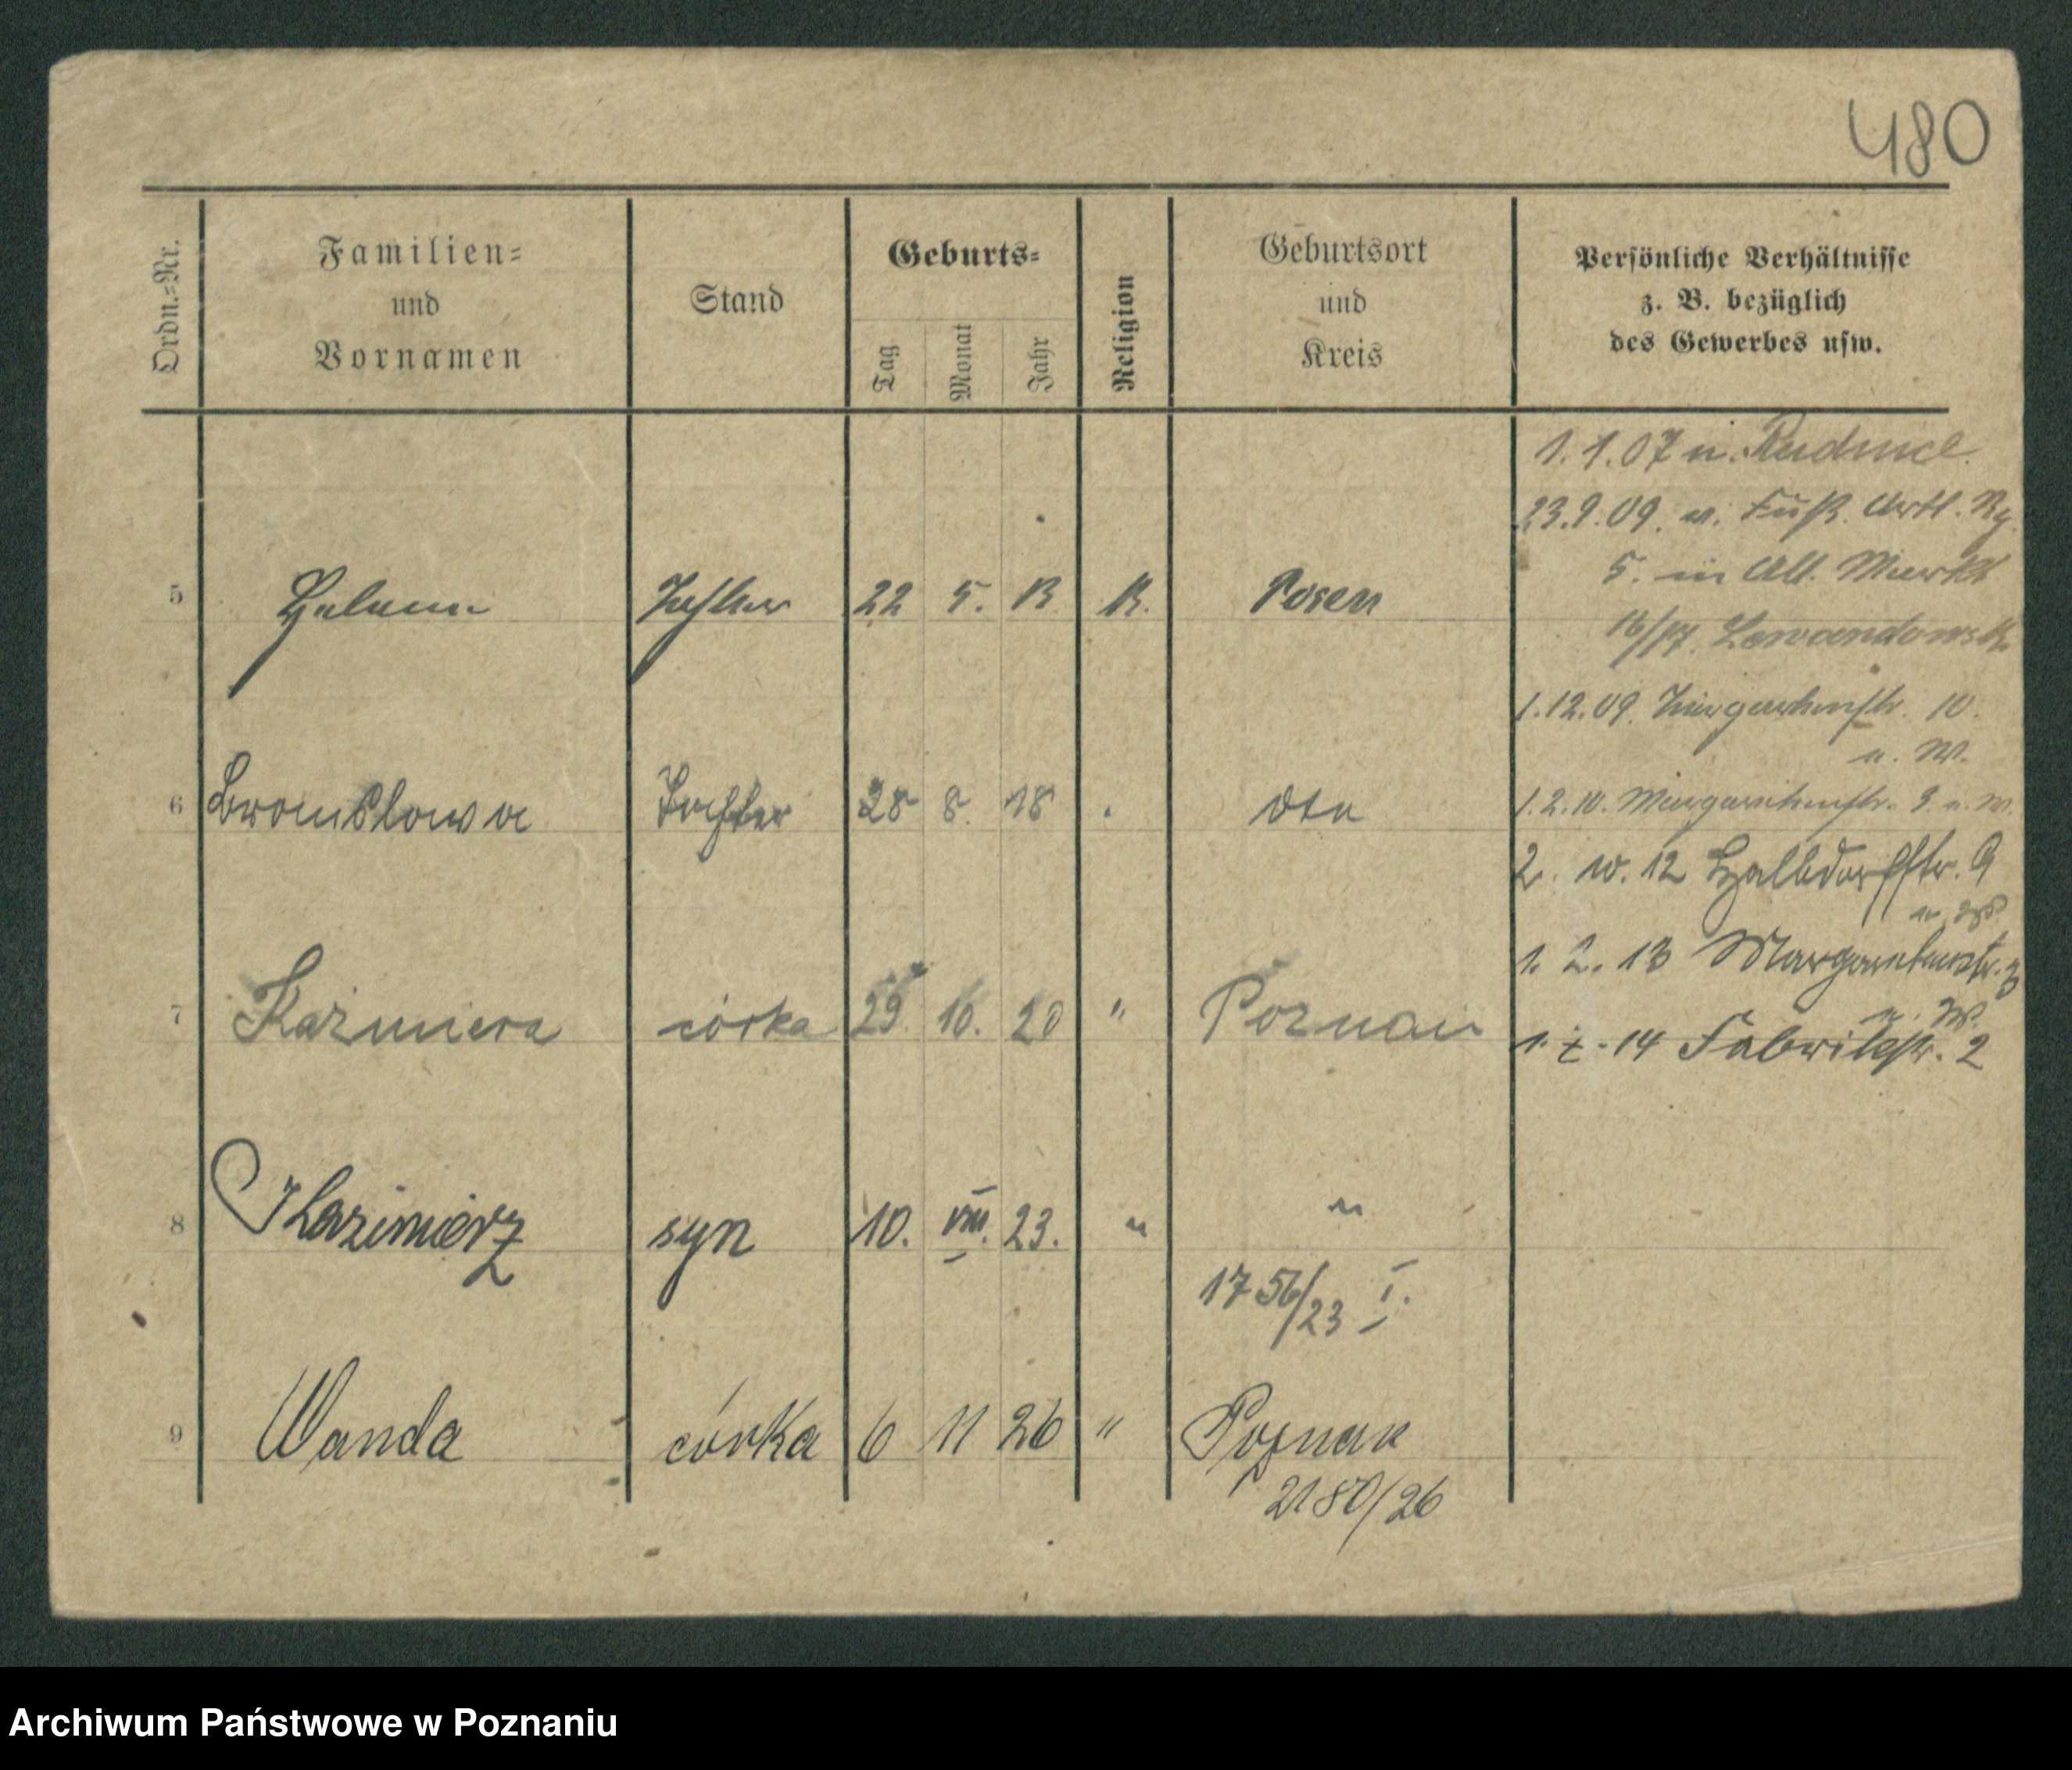 480
Ordn.-Nr.
Familien-
und
Vornamen
Stand
Geburts-
Tag
Monat
Jahr
Religion
Geburtsort
und
Kreis
Persönliche Verhältnisse
z. B. bezüglich
des Gewerbes usw.
1.1.07 n.
23.9.09. n. Fuß. Artl. Rg.
5. in Alt. Markt
16/17. Lewandowsk
5 Helena Tochter 22 5. 13 K. Posen
1.12.09. 10.
n. W.
6 Bronislowa Tochter 28 8. 18 dto
1.2.10. Margarethenstr. 9. n. W.
2. 10. 12 Halbdorfstr. 9
1. 2. 13 Margarethenstr. 3
n. W.
7 Kazimiera córka 29. 10. 20 " Poznań
1. 7. 14 Fabrikstr. 2
8 Kazimierz syn 10. VIII. 23. " "
1756/23 I.
9 Wanda córka 6 11 26 " Poznań
2180/26
Archiwum Państwowe w Poznaniu